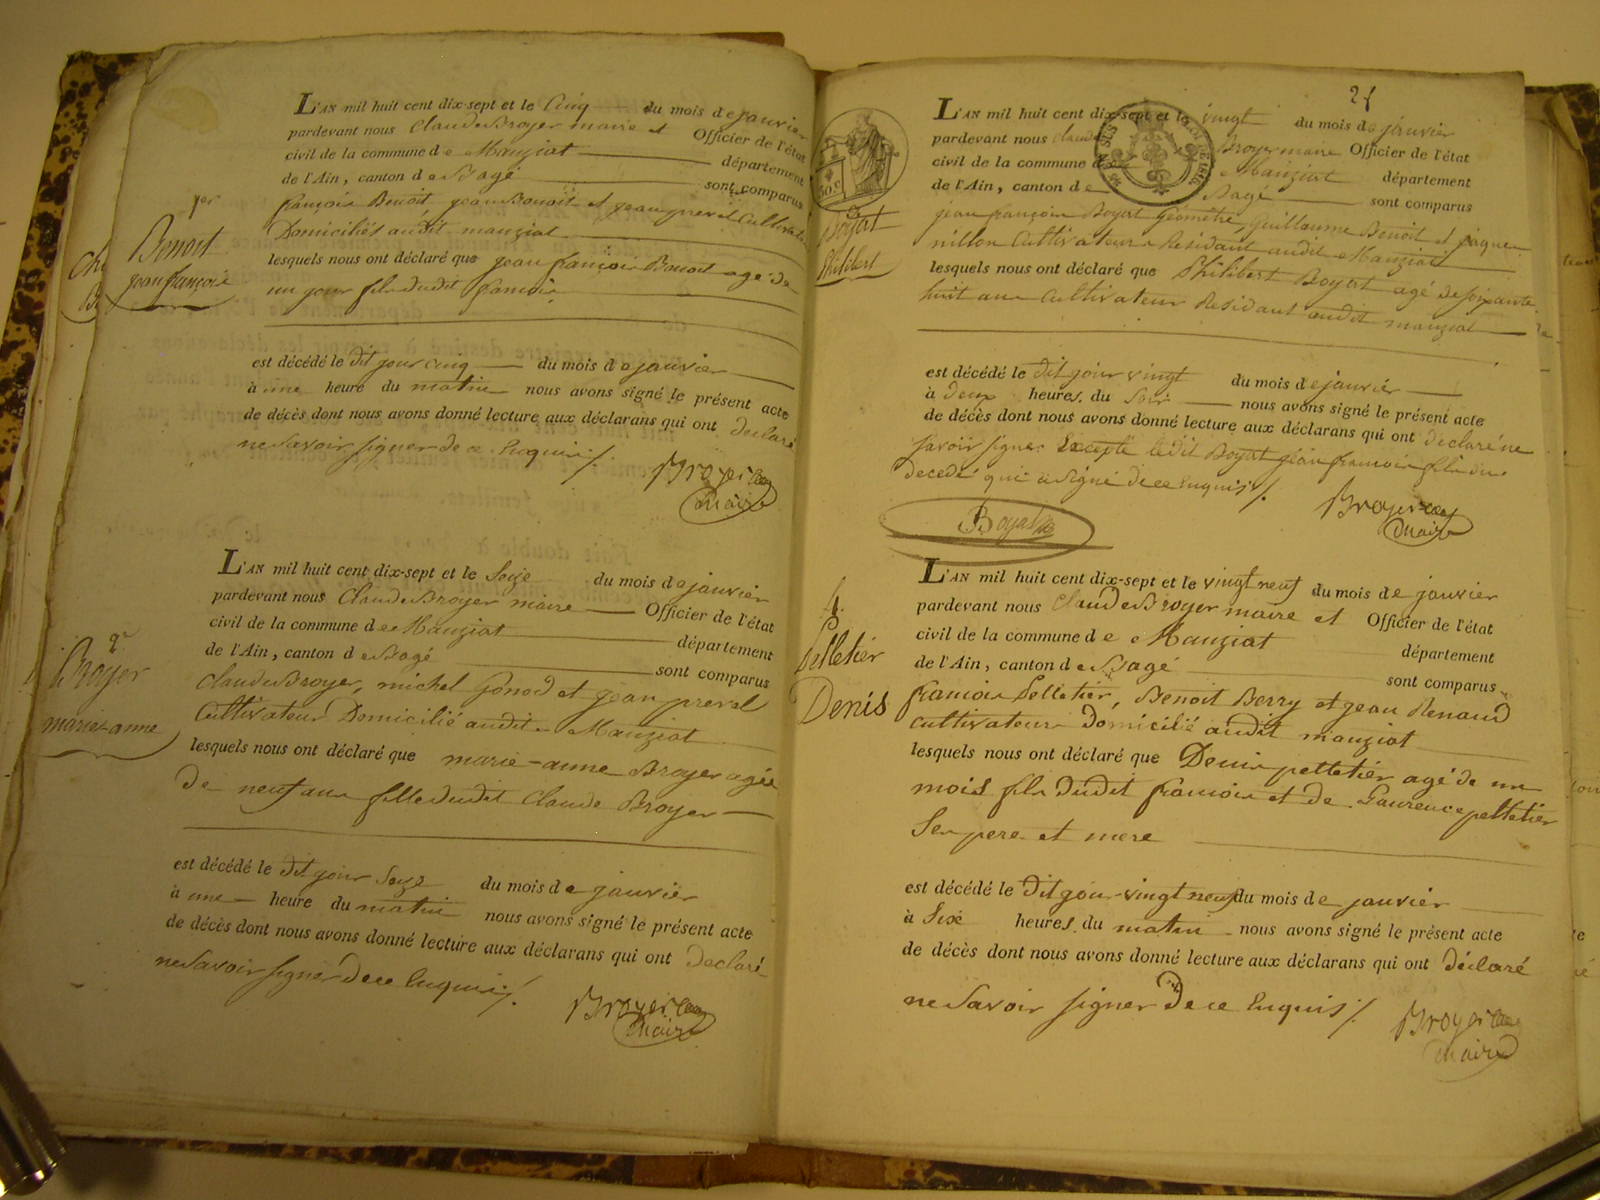 1er
Benoit
jean françois
L'AN mil huit cent dix-sept et le Cinq du mois de janvier
pardevant nous Claude Broyer maire et Officier de l'état
civil de la commune de Manziat département
de l'Ain, canton de Bagé sont comparus
françois Benoit jean Benoit et jean preval Cultivateurs
Domiciliés audit manziat
lesquels nous ont déclaré que jean françois Benoit agé de
un jour fils dudit francois
est décédé le dit jour cinq du mois de janvier
à une heure du matin nous avons signé le présent acte
de décès dont nous avons donné lecture aux déclarans qui ont declaré
ne savoir signer de ce Enquis ./.
Broyer
Maire
2e
Broyer
marie-anne
L'AN mil huit cent dix-sept et le Seize du mois de janvier
pardevant nous Claude Broyer maire Officier de l'état
civil de la commune de Manziat département
de l'Ain, canton de Bagé sont comparus
Claude Broyer, michel Gonod et jean preval
Cultivateur Domicilié audit Manziat
lesquels nous ont déclaré que marie-anne Broyer agée
de neuf ans fille dudit Claude Broyer
est décédé le dit jour Seize du mois de janvier
à une heure du matin nous avons signé le présent acte
de décès dont nous avons donné lecture aux déclarans qui ont declaré
ne savoir signer de ce Enquis ./.
Broyer
Maire
50 c
3
Boyat
Philibert
L'AN mil huit cent dix-sept et le vingt du mois de janvier
pardevant nous Claude Broyer maire Officier de l'état
civil de la commune de Manziat département
de l'Ain, canton de Bagé sont comparus
jean françois Boyat Géometre, Guillaume Benoit et jaques
nillon Cultivateurs Residant audit Manziat
lesquels nous ont déclaré que Philibert Boyat agé de soixante
huit ans Cultivateur Residant audit manziat
est décédé le dit jour vingt du mois de janvier
à deux heures du soir nous avons signé le présent acte
de décès dont nous avons donné lecture aux déclarans qui ont declaré ne
savoir signer Excepté ledit Boyat jean francois fils du
decedé qui a signé de ce Enquis ./.
Boyat
Broyer
Maire
4.
Pelletier
Denis
L'AN mil huit cent dix-sept et le vingt neuf du mois de janvier
pardevant nous Claude Broyer maire et Officier de l'état
civil de la commune de Manziat département
de l'Ain, canton de Bagé sont comparus
francois Pelletier, Benoit Berry et jean Renaud
cultivateurs Domicilié audit manziat
lesquels nous ont déclaré que Denis pelletier agé de un
mois fils dudit francois et de Laurence pelletier
Ses pere et mere
est décédé le dit jour vingt neuf du mois de janvier
à Six heures du matin nous avons signé le présent acte
de décès dont nous avons donné lecture aux déclarans qui ont déclaré
ne savoir signer De ce Enquis ./.
Broyer
Maire